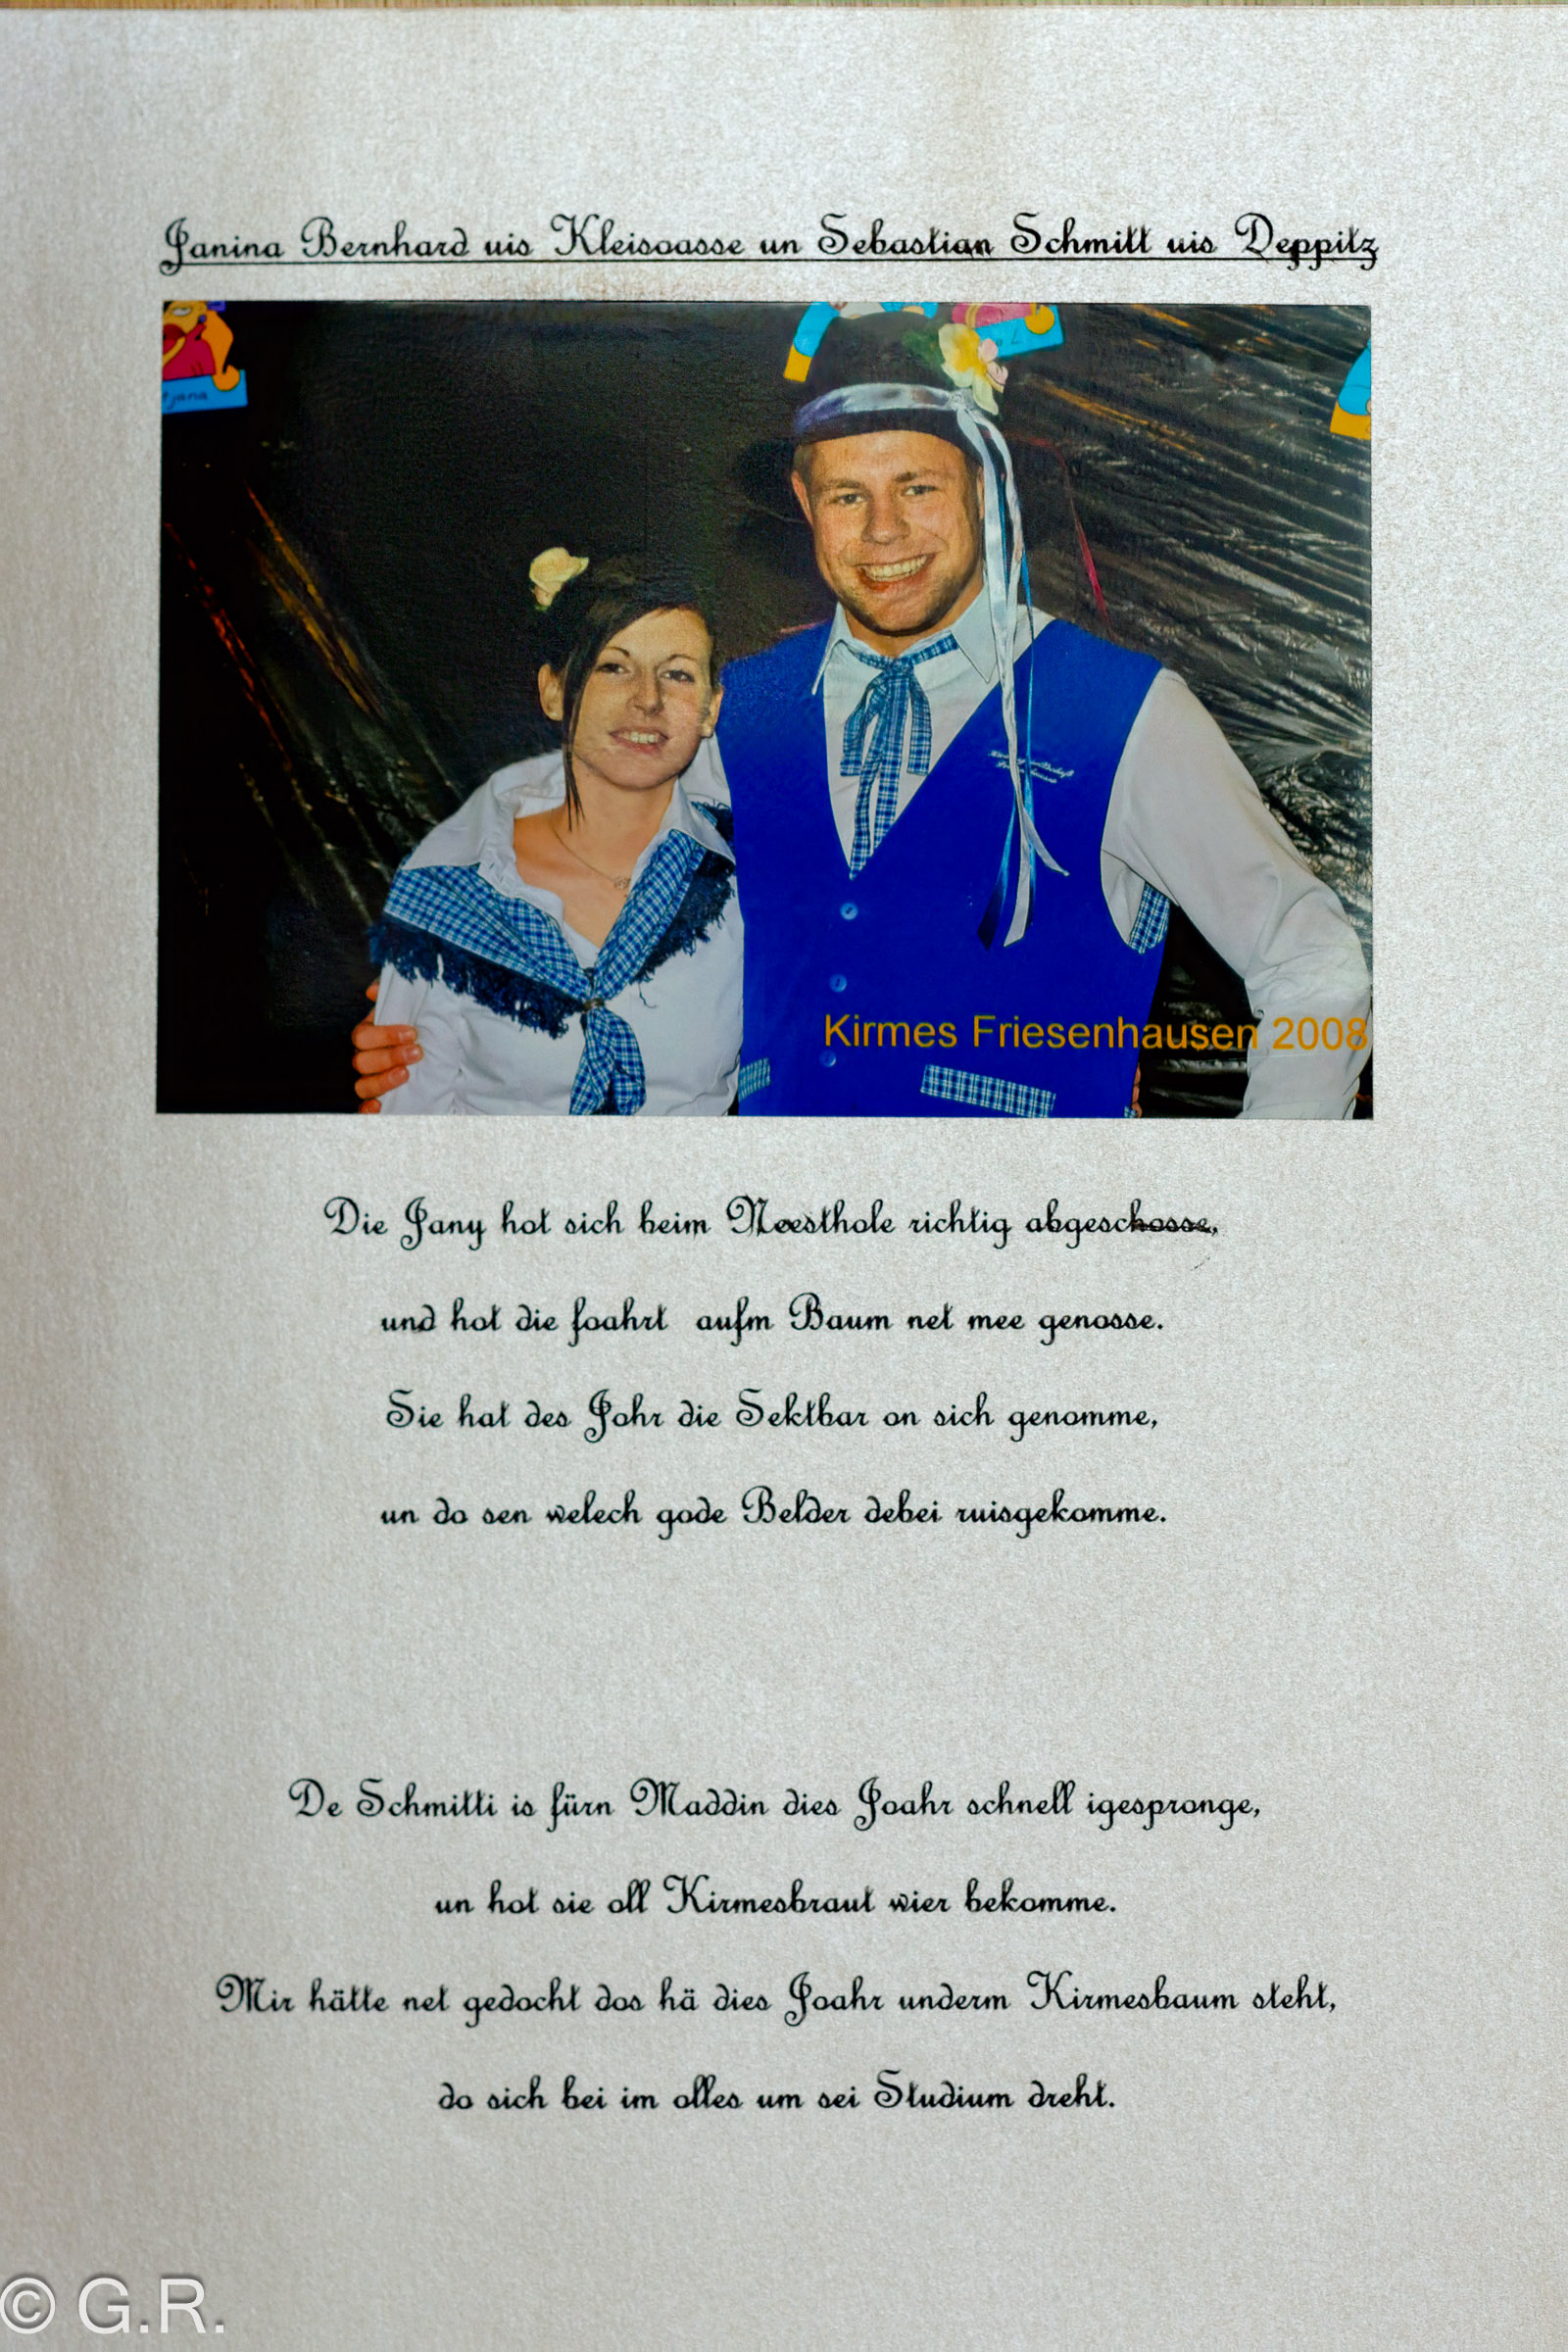 Janina Bernhard uis Kleisoasse un Sebastian Schmitt uis Deppitz
Kirmes Friesenhausen 2008
Die Jany hot sich beim Neesthole richtig abgeschosse,
und hot die foahrt aufm Baum net mee genosse.
Sie hat des Johr die Sektbar on sich genomme,
un do sen welech gode Belder debei ruisgekomme.
De Schmitti is fürn Maddin dies Joahr schnell igespronge,
un hot sie oll Kirmesbraut wier bekomme.
Mir hätte net gedocht dos hä dies Joahr underm Kirmesbaum steht,
do sich bei im olles um sei Studium dreht.
© G.R.